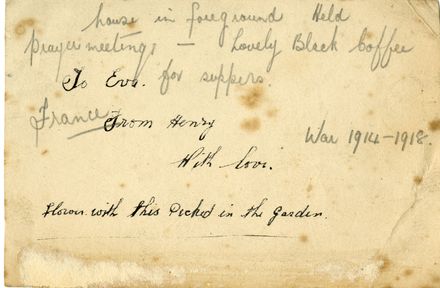 house in foreground Held
prayer meetings — Lovely Black Coffee
for suppers.
To Eva.
France
From Henry
War 1914-1918.
With love.
Flower with this Picked in the Garden.